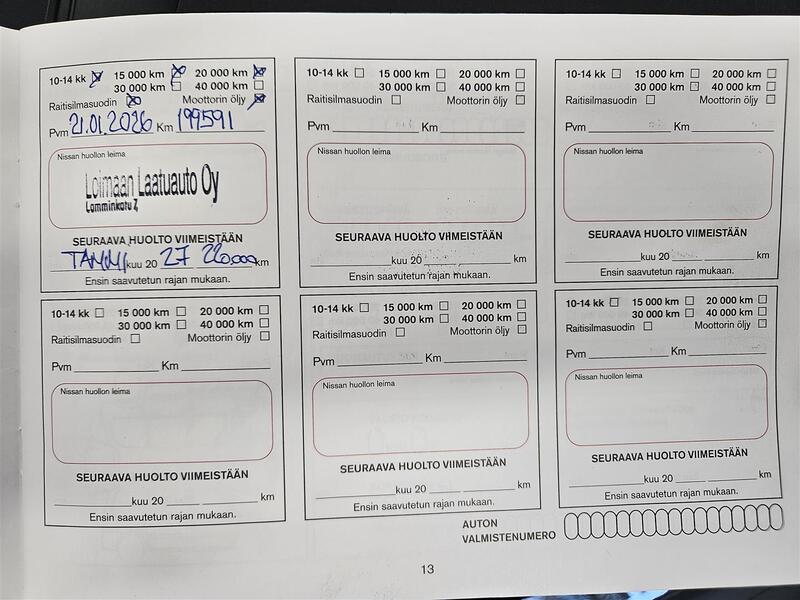 10-14 kk 15 000 km 20 000 km
30 000 km 40 000 km
Raitisilmasuodin Moottorin öljy
Pvm 21.01.2026 Km 199591
Nissan huollon leima
Loimaan Laatuauto Oy
Lamminkatu 7,
SEURAAVA HUOLTO VIIMEISTÄÄN
TAMMI kuu 20 27 km
Ensin saavutetun rajan mukaan.
10-14 kk 15 000 km 20 000 km
30 000 km 40 000 km
Raitisilmasuodin Moottorin öljy
Pvm Km
Nissan huollon leima
SEURAAVA HUOLTO VIIMEISTÄÄN
kuu 20 km
Ensin saavutetun rajan mukaan.
10-14 kk 15 000 km 20 000 km
30 000 km 40 000 km
Raitisilmasuodin Moottorin öljy
Pvm Km
Nissan huollon leima
SEURAAVA HUOLTO VIIMEISTÄÄN
kuu 20 km
Ensin saavutetun rajan mukaan.
10-14 kk 15 000 km 20 000 km
30 000 km 40 000 km
Raitisilmasuodin Moottorin öljy
Pvm Km
Nissan huollon leima
SEURAAVA HUOLTO VIIMEISTÄÄN
kuu 20 km
Ensin saavutetun rajan mukaan.
10-14 kk 15 000 km 20 000 km
30 000 km 40 000 km
Raitisilmasuodin Moottorin öljy
Pvm Km
Nissan huollon leima
SEURAAVA HUOLTO VIIMEISTÄÄN
kuu 20 km
Ensin saavutetun rajan mukaan.
10-14 kk 15 000 km 20 000 km
30 000 km 40 000 km
Raitisilmasuodin Moottorin öljy
Pvm Km
Nissan huollon leima
SEURAAVA HUOLTO VIIMEISTÄÄN
kuu 20 km
Ensin saavutetun rajan mukaan.
AUTON
VALMISTENUMERO
13